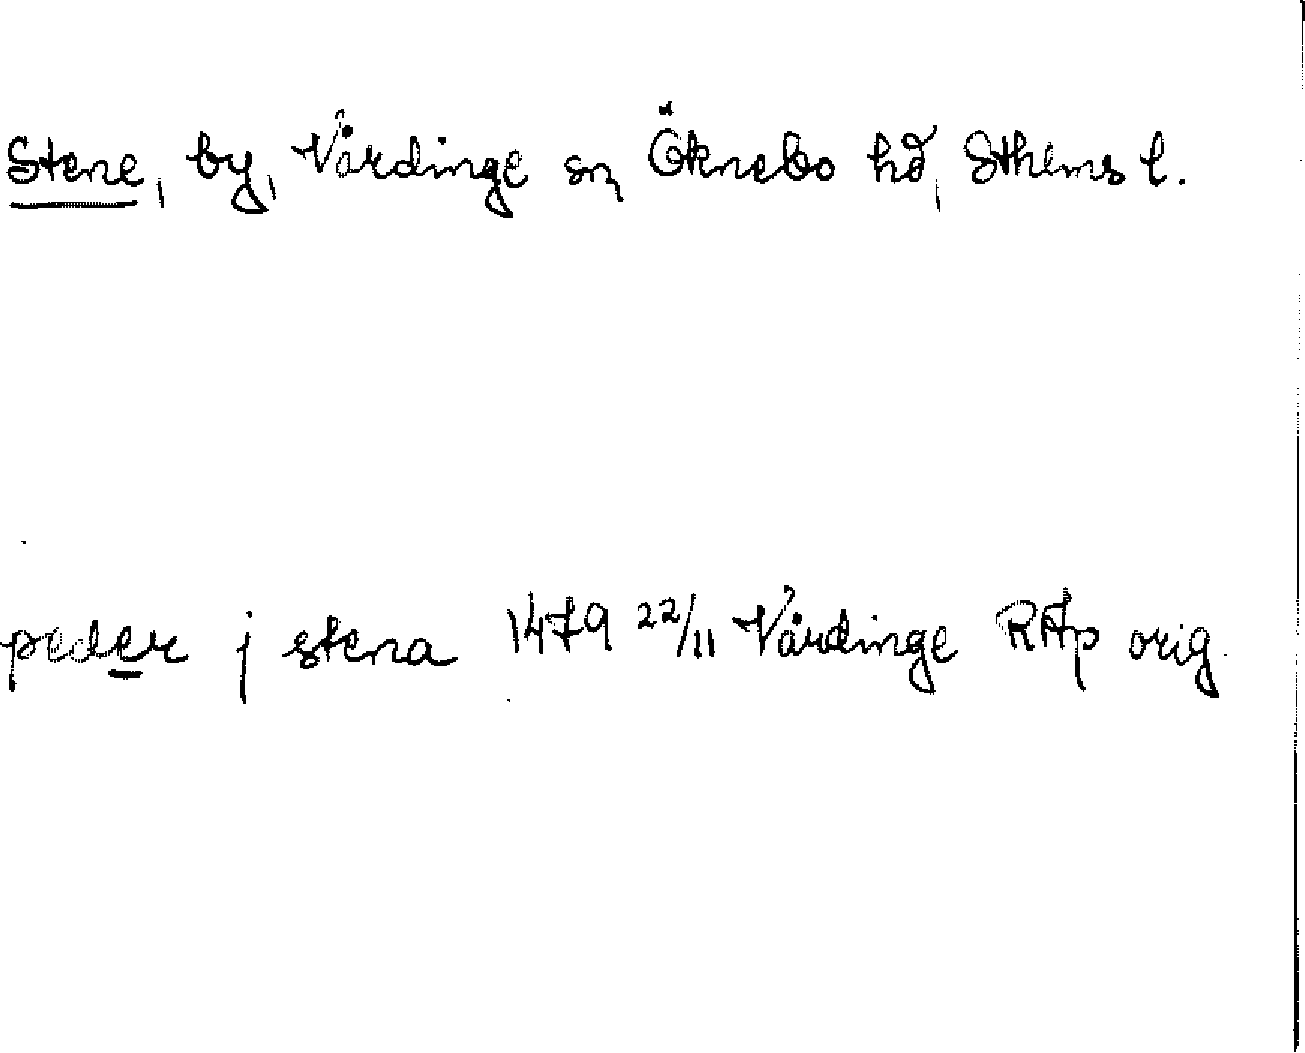 Stene, by, Vårdinge sn, Öknebo hd, Sthlms l.
peder j stena 1479 22/11 Vårdinge RAp orig.